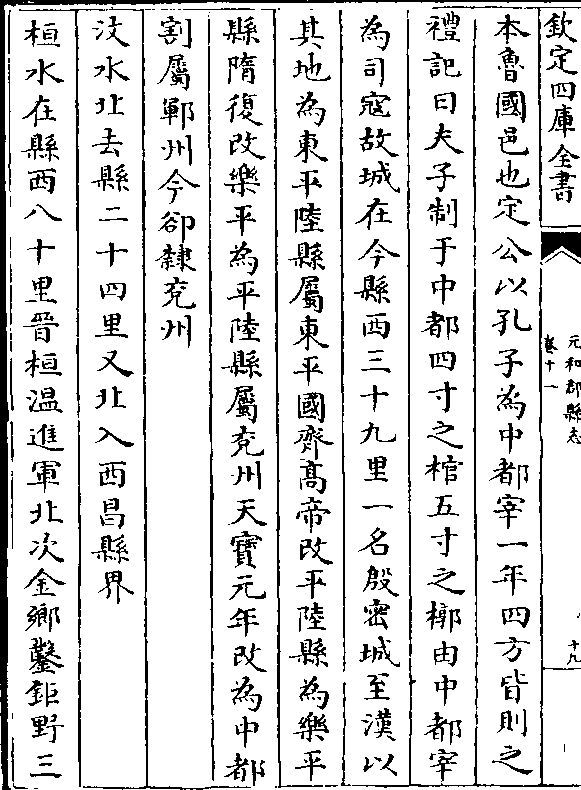 欽定四庫全書
元和郡縣志
卷十一
十九
本魯國邑也定公以孔子為中都宰一年四方皆則之
禮記曰夫子制于中都四寸之棺五寸之槨由中都宰
為司寇故城在今縣西三十九里一名殷密城至漢以
其地為東平陸縣屬東平國齊高帝改平陸縣為樂平
縣隋復改樂平為平陸縣屬兖州天寶元年改為中都
割屬鄆州今卻隸兖州
汶水北去縣二十四里又北入西昌縣界
桓水在縣西八十里晉桓溫進軍北次金鄉鑿鉅野三